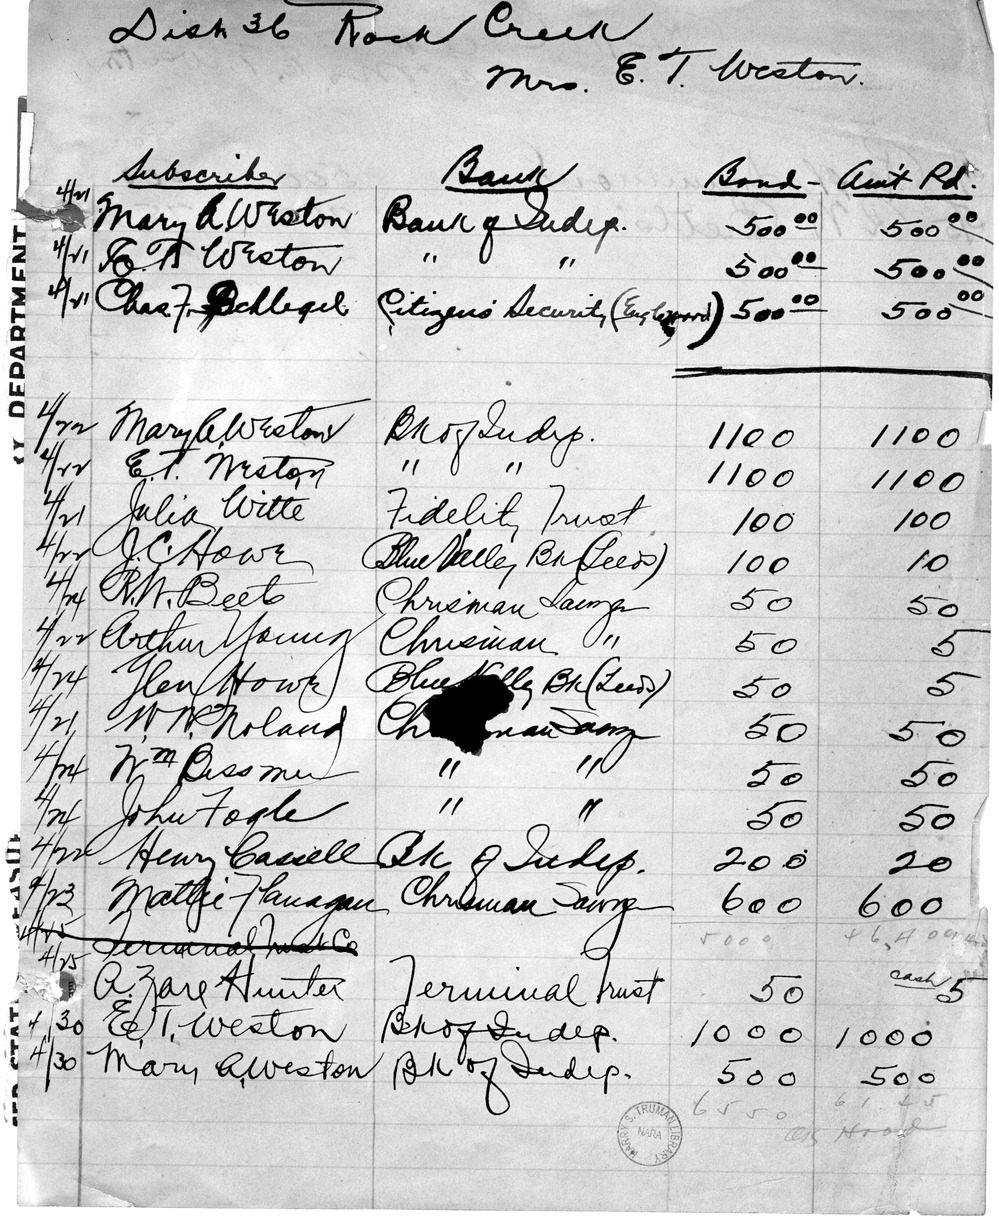 Dist 36 Rock Creek
Mrs. E. T. Weston.
Subscriber Bank Bond - Am't Pd.
4/21 Mary A Weston Bank of Indep. 500.00 500.00
4/21 E. T. Weston " " 500.00 500.00
4/21 Chas. F. Schlegel Citizens Security (Englewood) 500.00 500.00
4/22 Mary A. Weston Bk of Indep. 1100 1100
4/22 E. T. Weston " " 1100 1100
4/21 Julia Witte Fidelity Trust 100 100
4/22 J. C. Howe Blue Valley Bk (Leeds) 100 10
4/24 R. W. Beets Chrisman Sawyer 50 50
4/22 Arthur Young Chrisman " 50 5
4/24 Glen Howe Blue Valley Bk (Leeds) 50 5
4/21 W. W. Noland Ch man Sawyer 50 50
4/24 Wm " " 50 50
4/24 John Fogle " " 50 50
4/22 Henry Cassell Bk of Indep. 200 20
4/23 Mattie Flanagan Chrisman Sawyer 600 600
4/25 Terminal Trust Co 5000
4/25 A. Zare Hunter Terminal Trust 50 cash 5
4/30 E. T. Weston Bk of Indep. 1000 1000
4/30 Mary A. Weston Bk of Indep. 500 500
6550 6145
OK
HARRY S. TRUMAN LIBRARY
NARA
Y DEPARTMENT